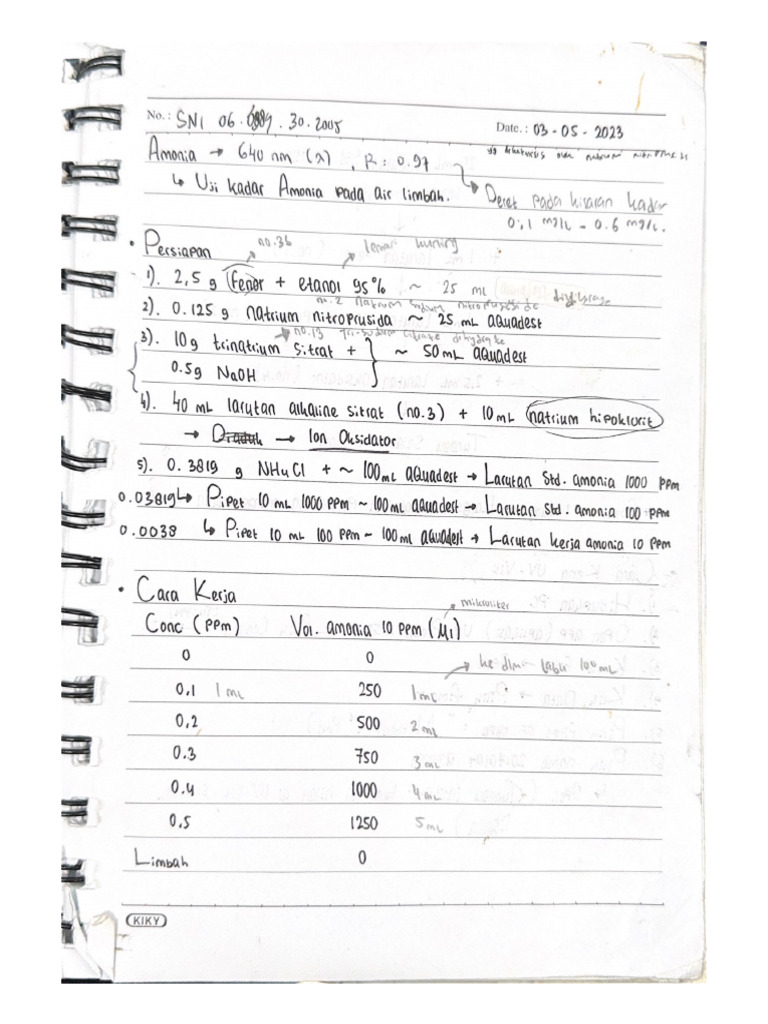 No.: SNI 06.6989.30.2005
Date.: 03-05-2023
Amonia → 640 nm (λ), R: 0.97
↳ Uji kadar Amonia pada air limbah.
Deret pada kisaran kadar
0,1 mg/L - 0.6 mg/L.
• Persiapan
no.36
lemari kuning
1). 2,5 g fenol + etanol 95% ~ 25 mL
no.2 Natrium sodium nitroprusside
2). 0.125 g natrium nitroprusida ~ 25 mL aquadest
no.13 tri-sodium citrate dihydrate
3). 10g trinatrium sitrat + } ~ 50mL aquadest
0.5g NaOH
4). 40 mL larutan alkaline sitrat (no.3) + 10mL natrium hipoklorit
→ Diaduk → Ion Oksidator
5). 0.3819 g NH4Cl + ~ 100mL aquadest → Larutan Std. amonia 1000 ppm
0.03819 ↳ Pipet 10 mL 1000 ppm ~ 100mL aquadest → Larutan Std. amonia 100 ppm
0.0038 ↳ Pipet 10 mL 100 ppm ~ 100mL aquadest → Larutan kerja amonia 10 ppm
• Cara Kerja
mikroliter
Conc (ppm) Vol. amonia 10 ppm (μl)
0 0
ke dlm labu 100mL
0,1 1mL 250 1mL
0,2 500 2mL
0.3 750 3mL
0.4 1000 4mL
0.5 1250 5mL
Limbah 0
KIKY